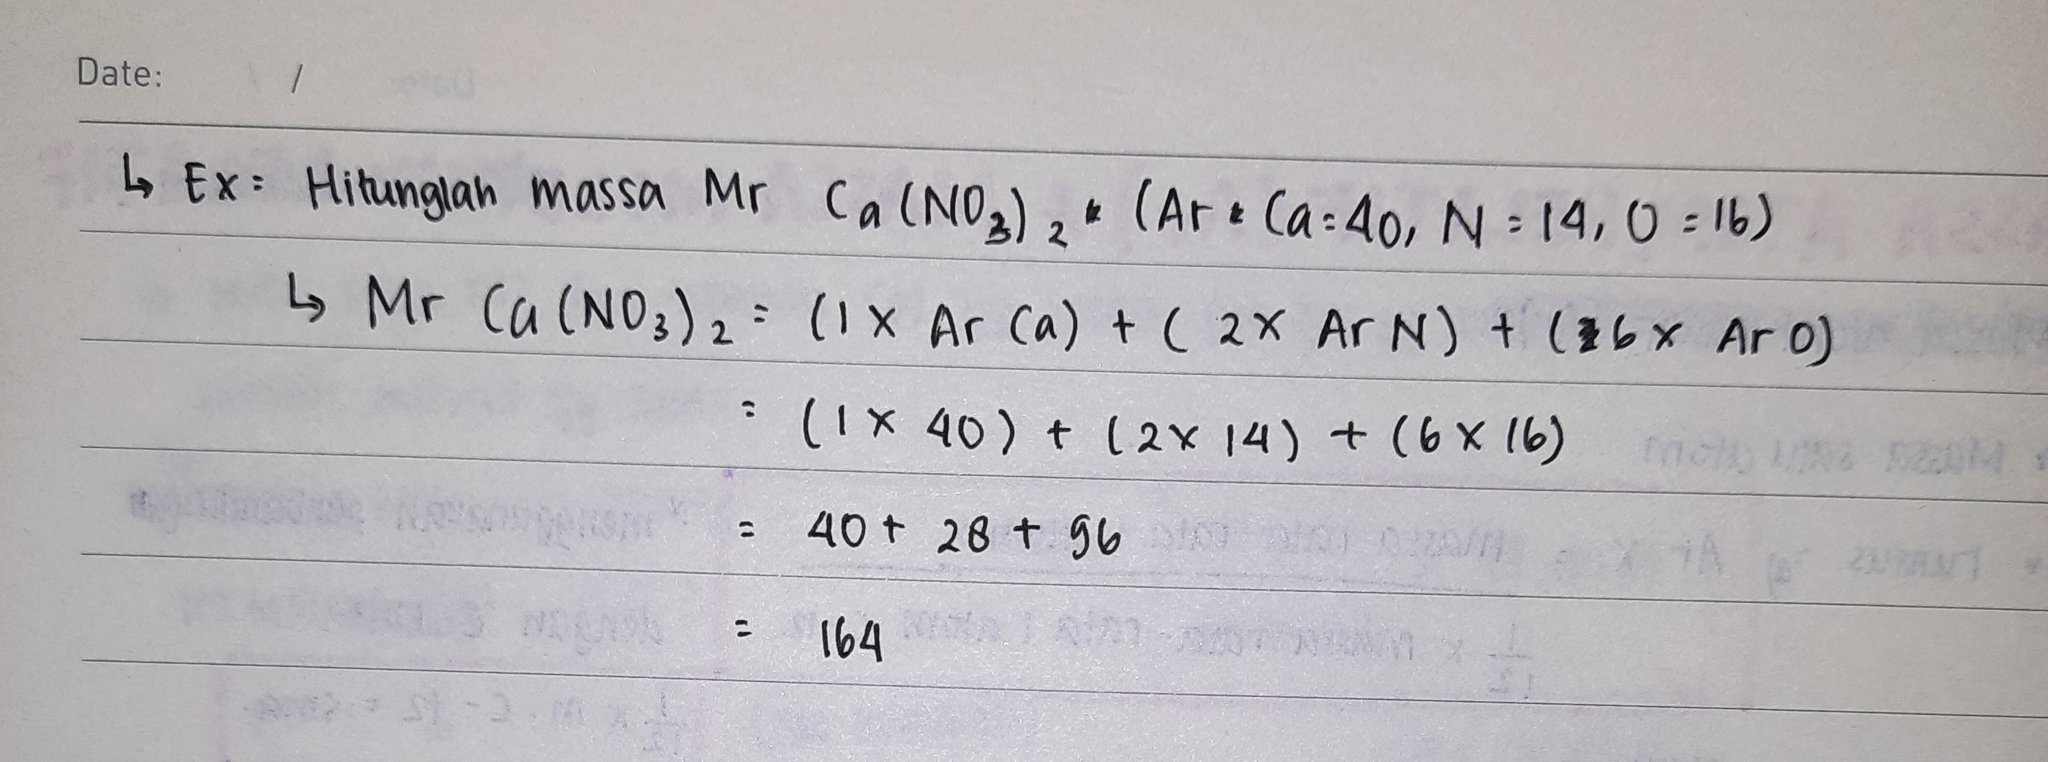 Date: / /
↳ Ex = Hitunglah massa Mr Ca(NO₃)₂ • (Ar • Ca = 40, N = 14, O = 16)
↳ Mr Ca(NO₃)₂ = (1 x Ar Ca) + ( 2x Ar N) + (6x Ar O)
= (1 x 40) + (2x 14) + (6 x 16)
= 40 + 28 + 96
= 164